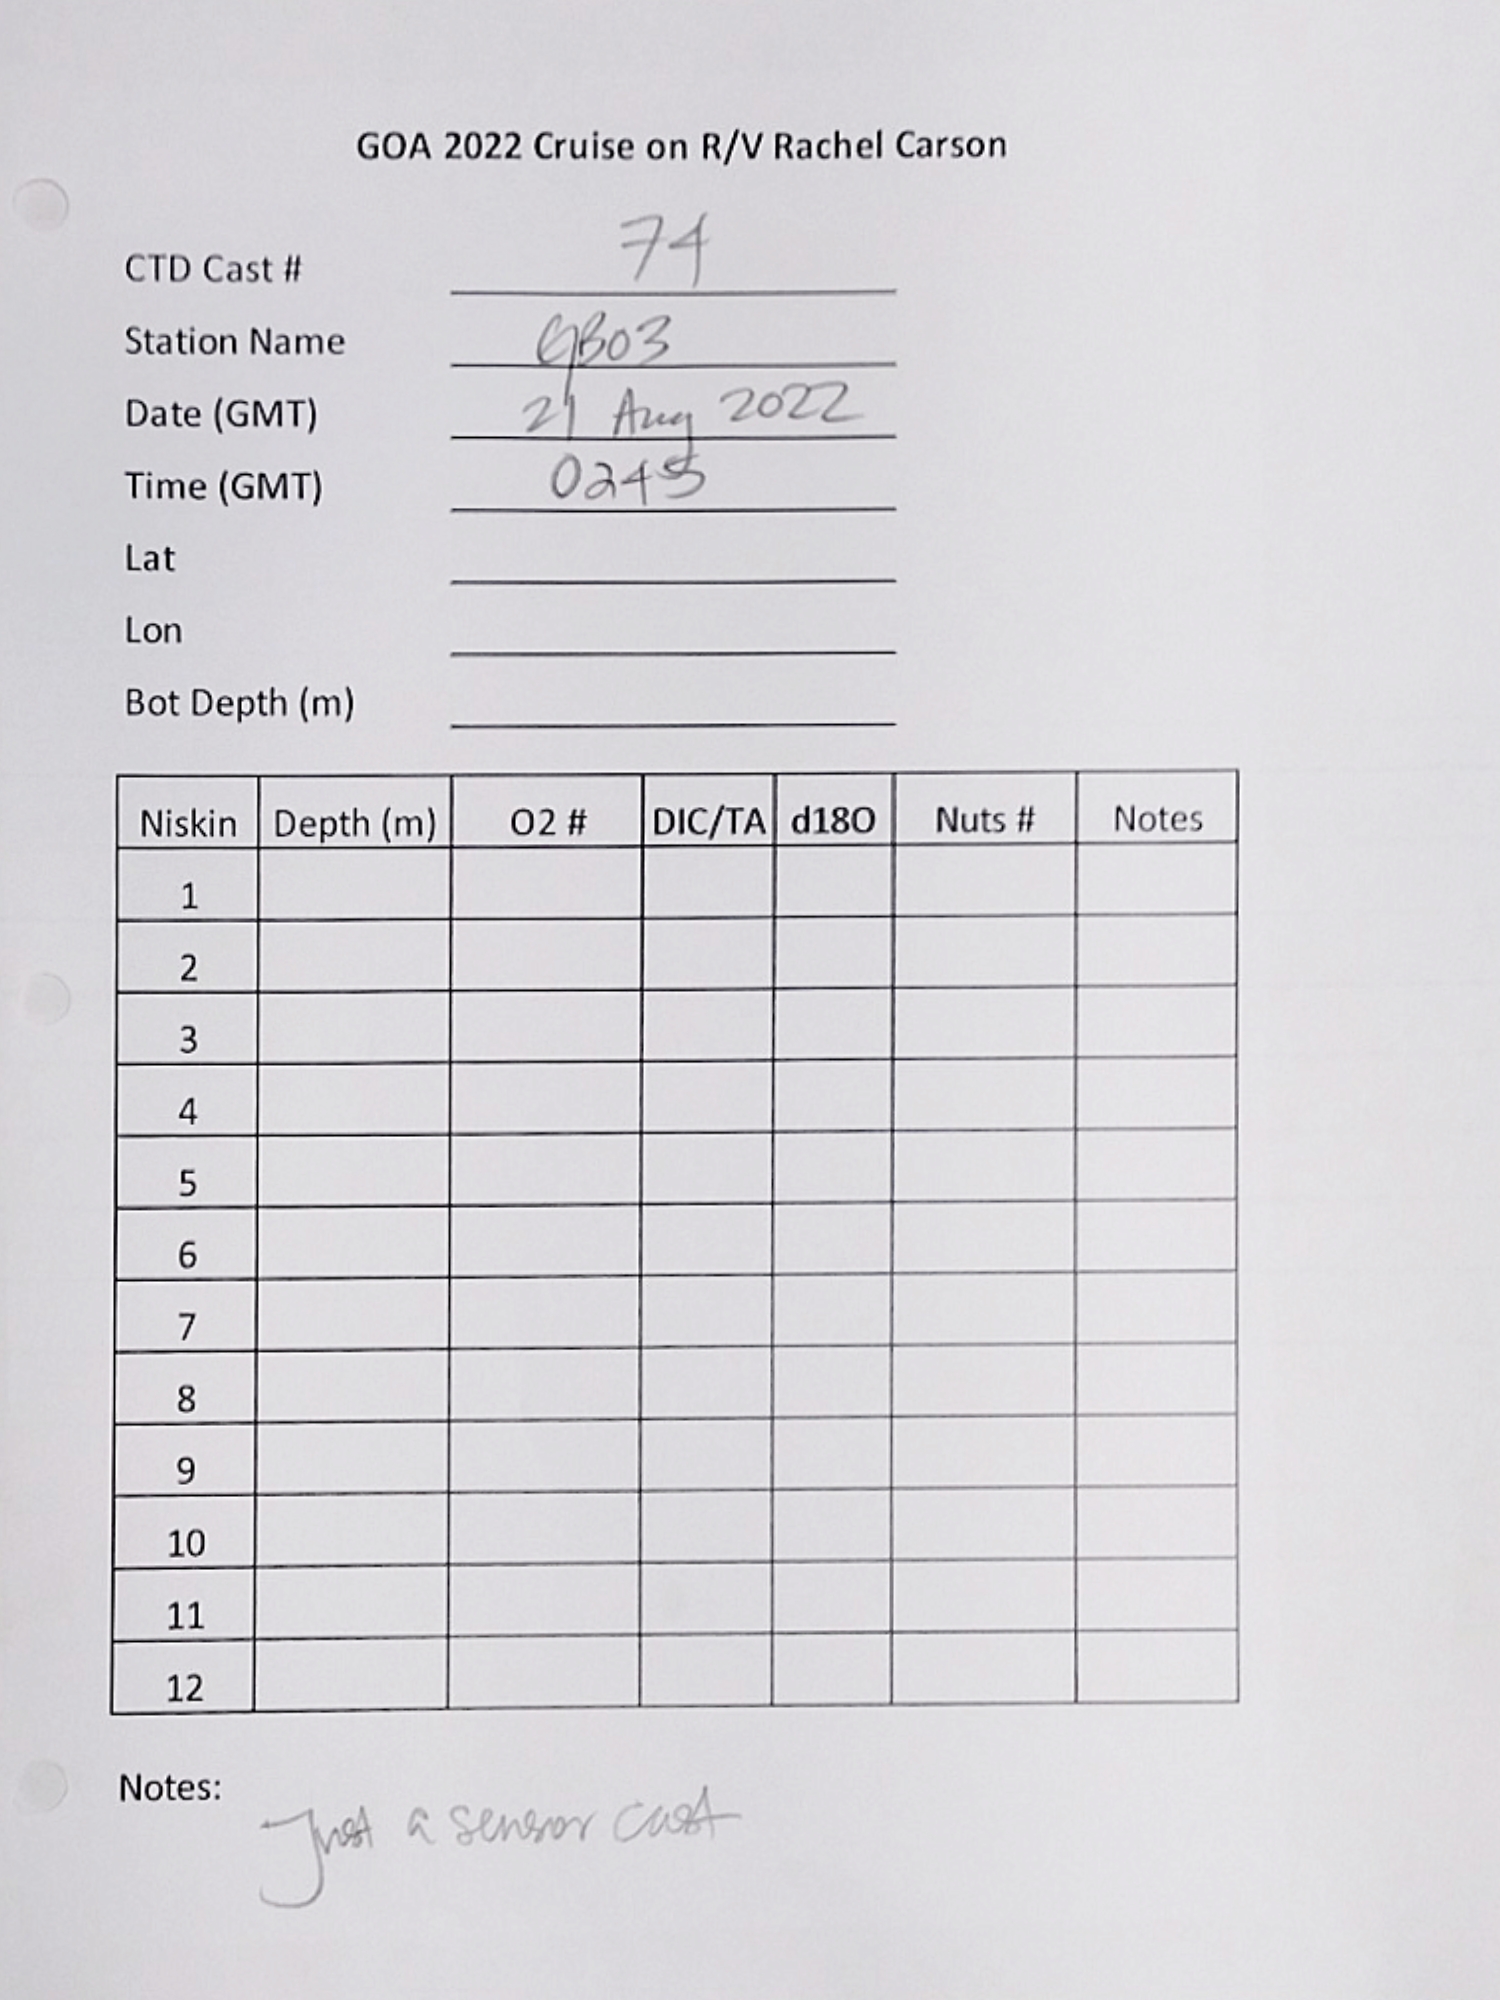 GOA 2022 Cruise on R/V Rachel Carson
CTD Cast # 74
Station Name GB03
Date (GMT) 21 Aug 2022
Time (GMT) 0245
Lat
Lon
Bot Depth (m)
Niskin Depth (m) O2 # DIC/TA d18O Nuts # Notes
1
2
3
4
5
6
7
8
9
10
11
12
Notes:
Just a sensor cast